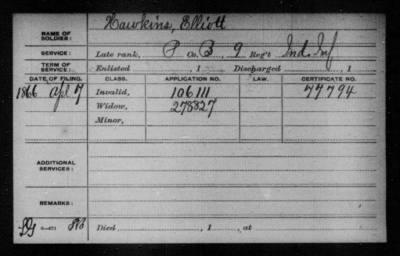 Hawkins, Elliott
NAME OF SOLDIER:
SERVICE: Late rank, P Co. B, 9 Reg't Ind. Inf
TERM OF SERVICE: Enlisted , 1 Discharged , 1
DATE OF FILING. CLASS. APPLICATION NO. LAW. CERTIFICATE NO.
1866 Apl 7 Invalid, 106111 77794
Widow, 278827
Minor,
ADDITIONAL SERVICES:
REMARKS:
Died , 1 , at